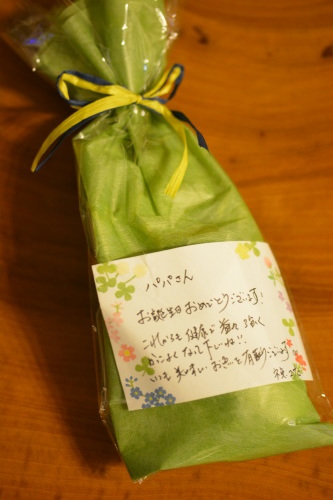 パパさん
お誕生日おめでとうございます!
これからも健康で益々強く
かっこよくなって下いね!!
いつも美味しいお魚を有難うございます